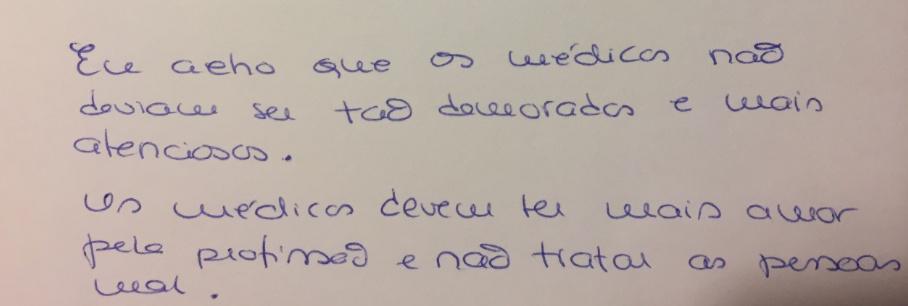 Eu acho que os médicos não
deviam ser tão demorados e mais
atenciosos.
Os médicos devem ter mais amor
pela profissão e não tratar as pessoas
mal.